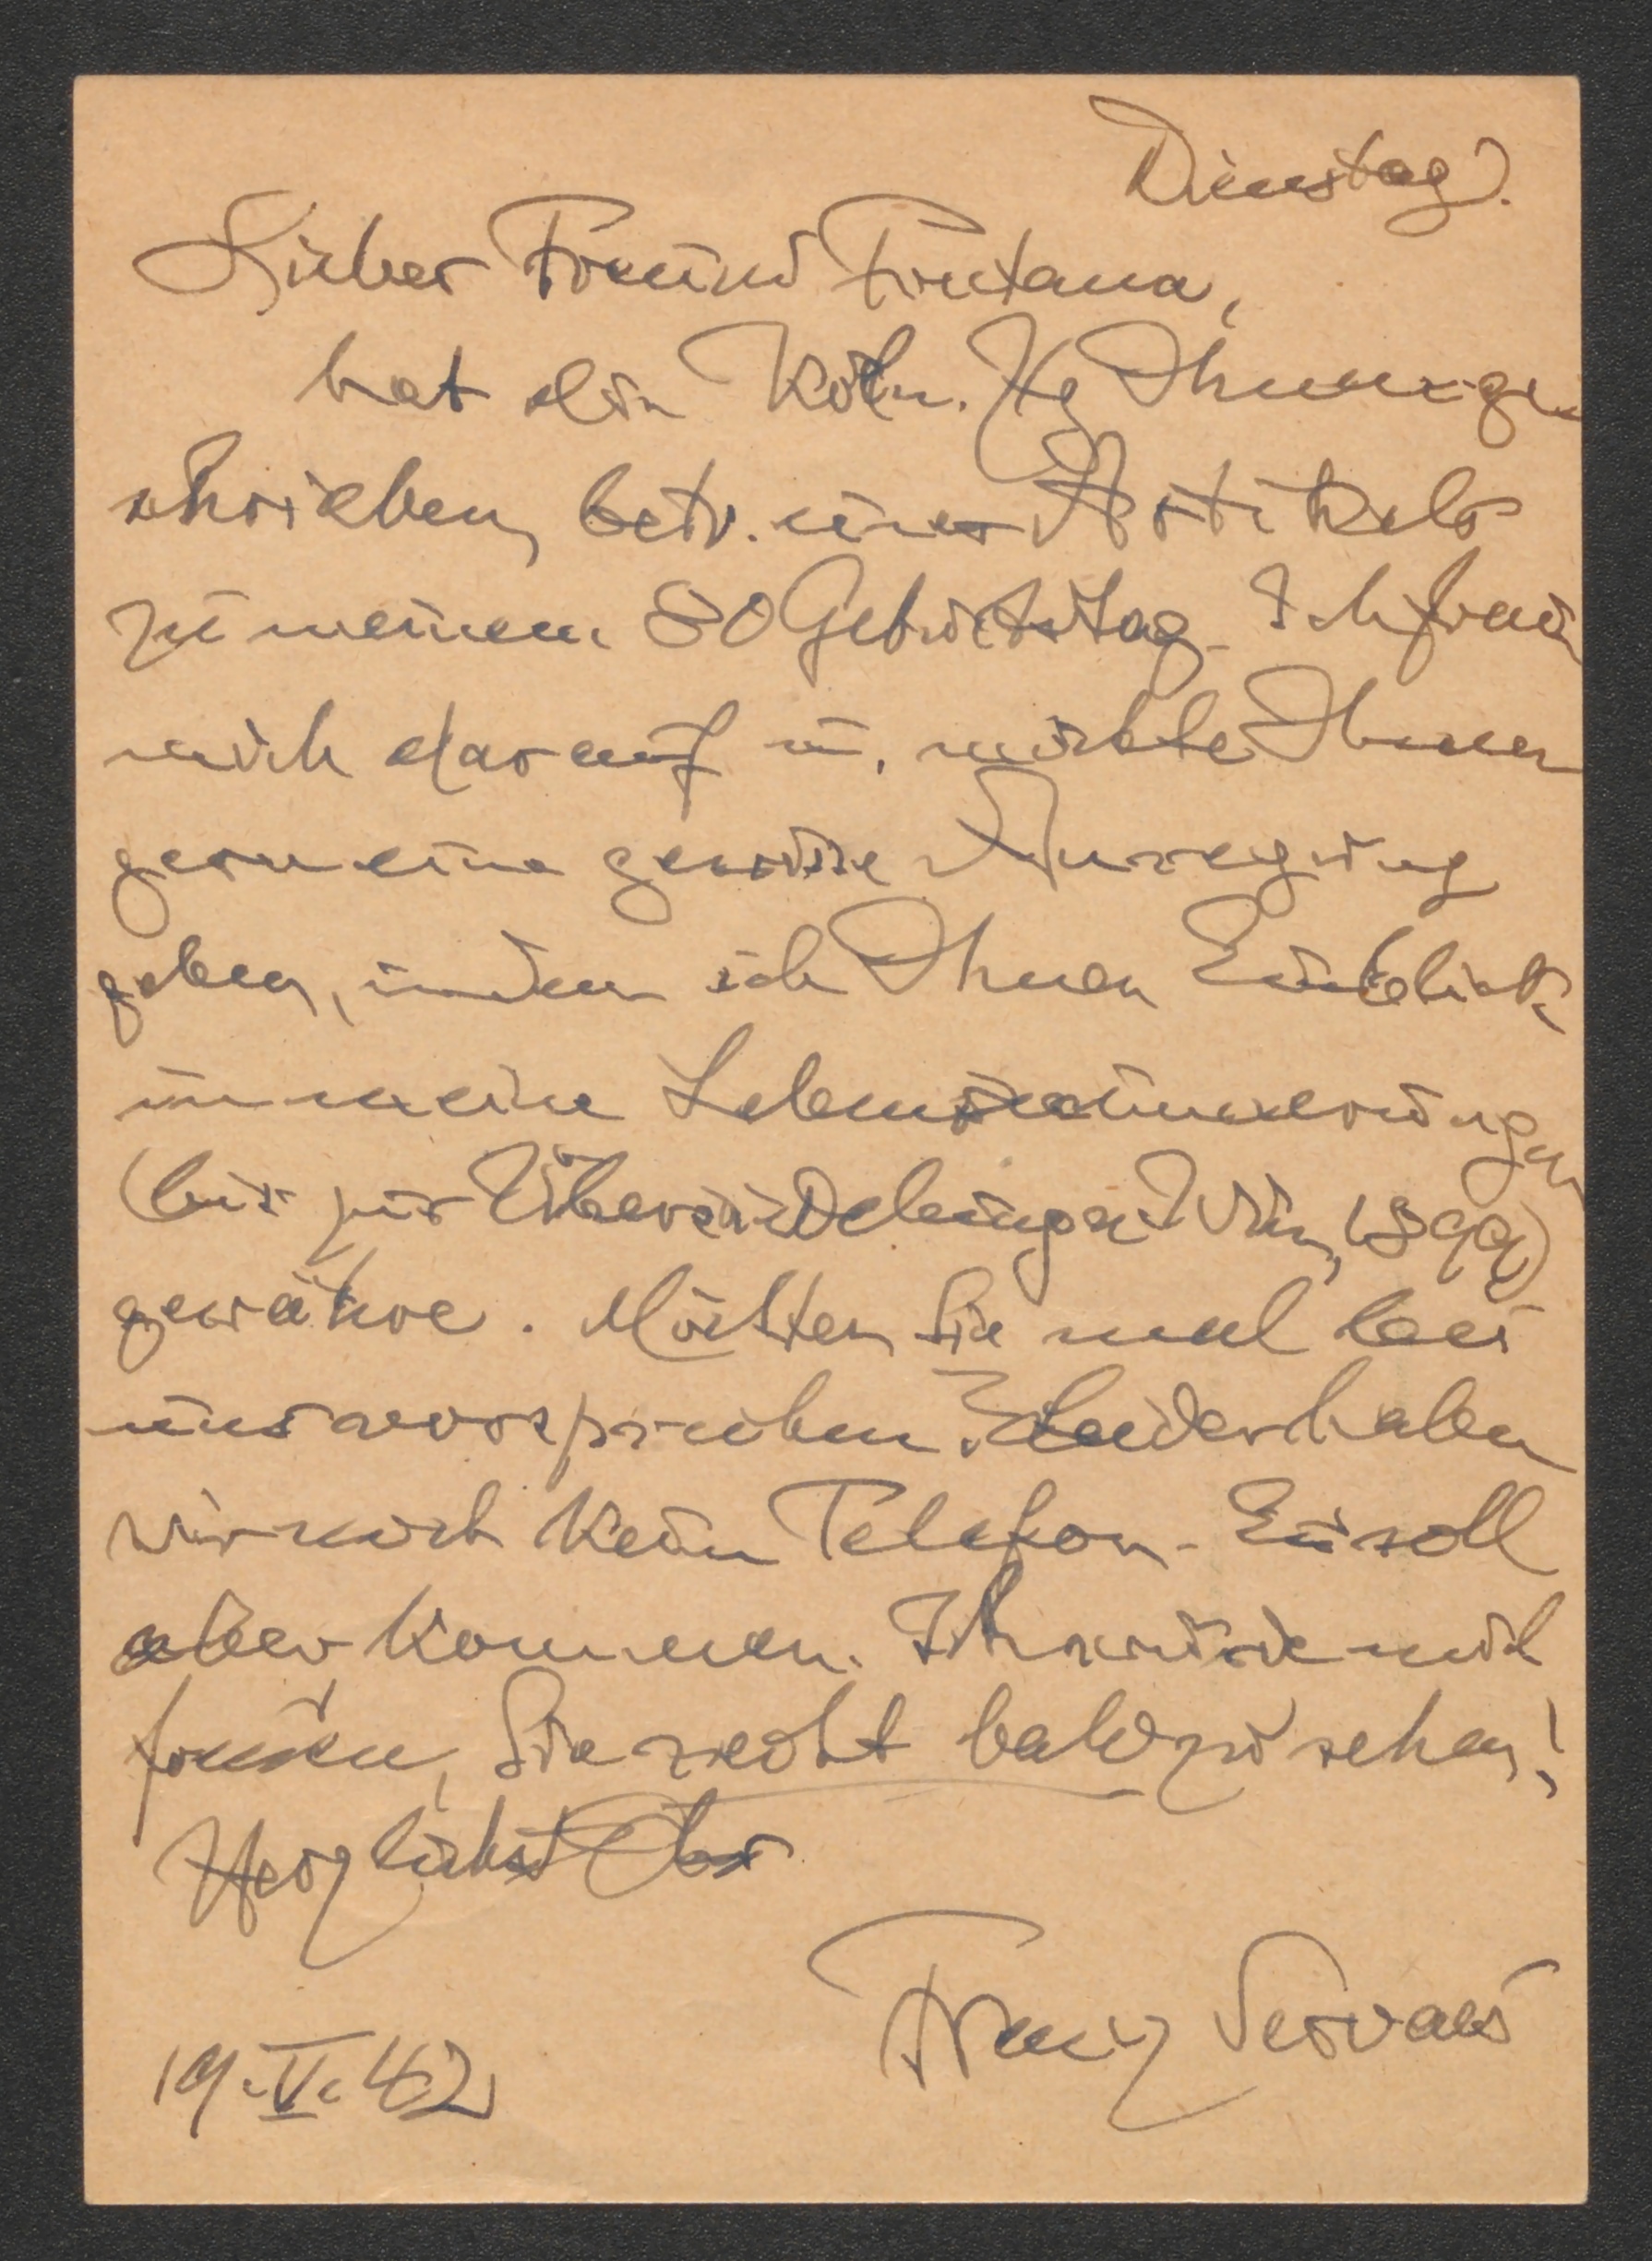 Dienstag.
Lieber Freund Fontana,
hat die Köln. Ztg Ihnen ge-
schrieben, betr. eines Artikels
zu meinem 80 Geburtstag. Ich freue
mich darauf u. möchte Ihnen
gern eine gewisse Anregung
geben, indem ich Ihnen Einblick
in meine Lebenserinnerungen
(bis zur Übersiedelung n. Wien, 1899)
gewähre. Möchten Sie mal bei
uns vorsprechen? Leider haben
wir noch kein Telefon. Es soll
aber kommen. Ich würde mich
freuen, Sie recht bald zu sehen!
Herzlichst Ihr
Franz Servaes
19.V.42